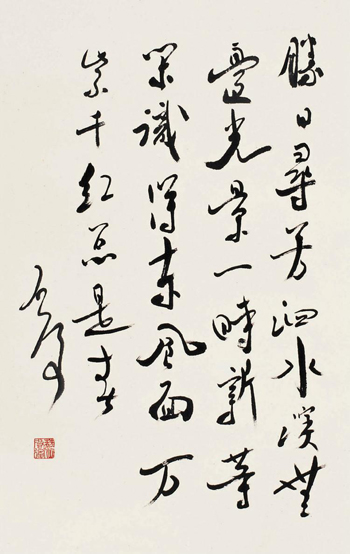 勝日尋芳泗水濱無
邊光景一時新等
閑識得東風面万
紫千紅總是春